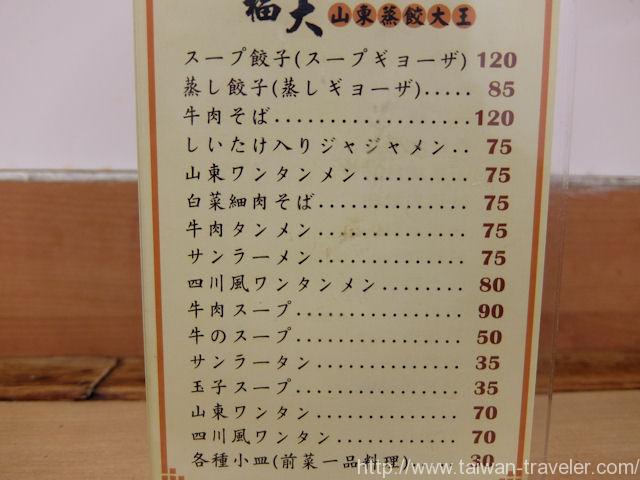 福大 山東蒸餃大王
スープ餃子(スープギョーザ) 120
蒸し餃子(蒸しギョーザ)..... 85
牛肉そば.................120
しいたけ入りジャジャメン.. 75
山東ワンタンメン........... 75
白菜細肉そば............... 75
牛肉タンメン............... 75
サンラーメン............... 75
四川風ワンタンメン........ 80
牛肉スープ................ 90
牛のスープ................ 50
サンラータン.............. 35
玉子スープ................ 35
山東ワンタン............. 70
四川風ワンタン........... 70
各種小皿(前菜一品料理).... 30
http://www.taiwan-traveler.com/